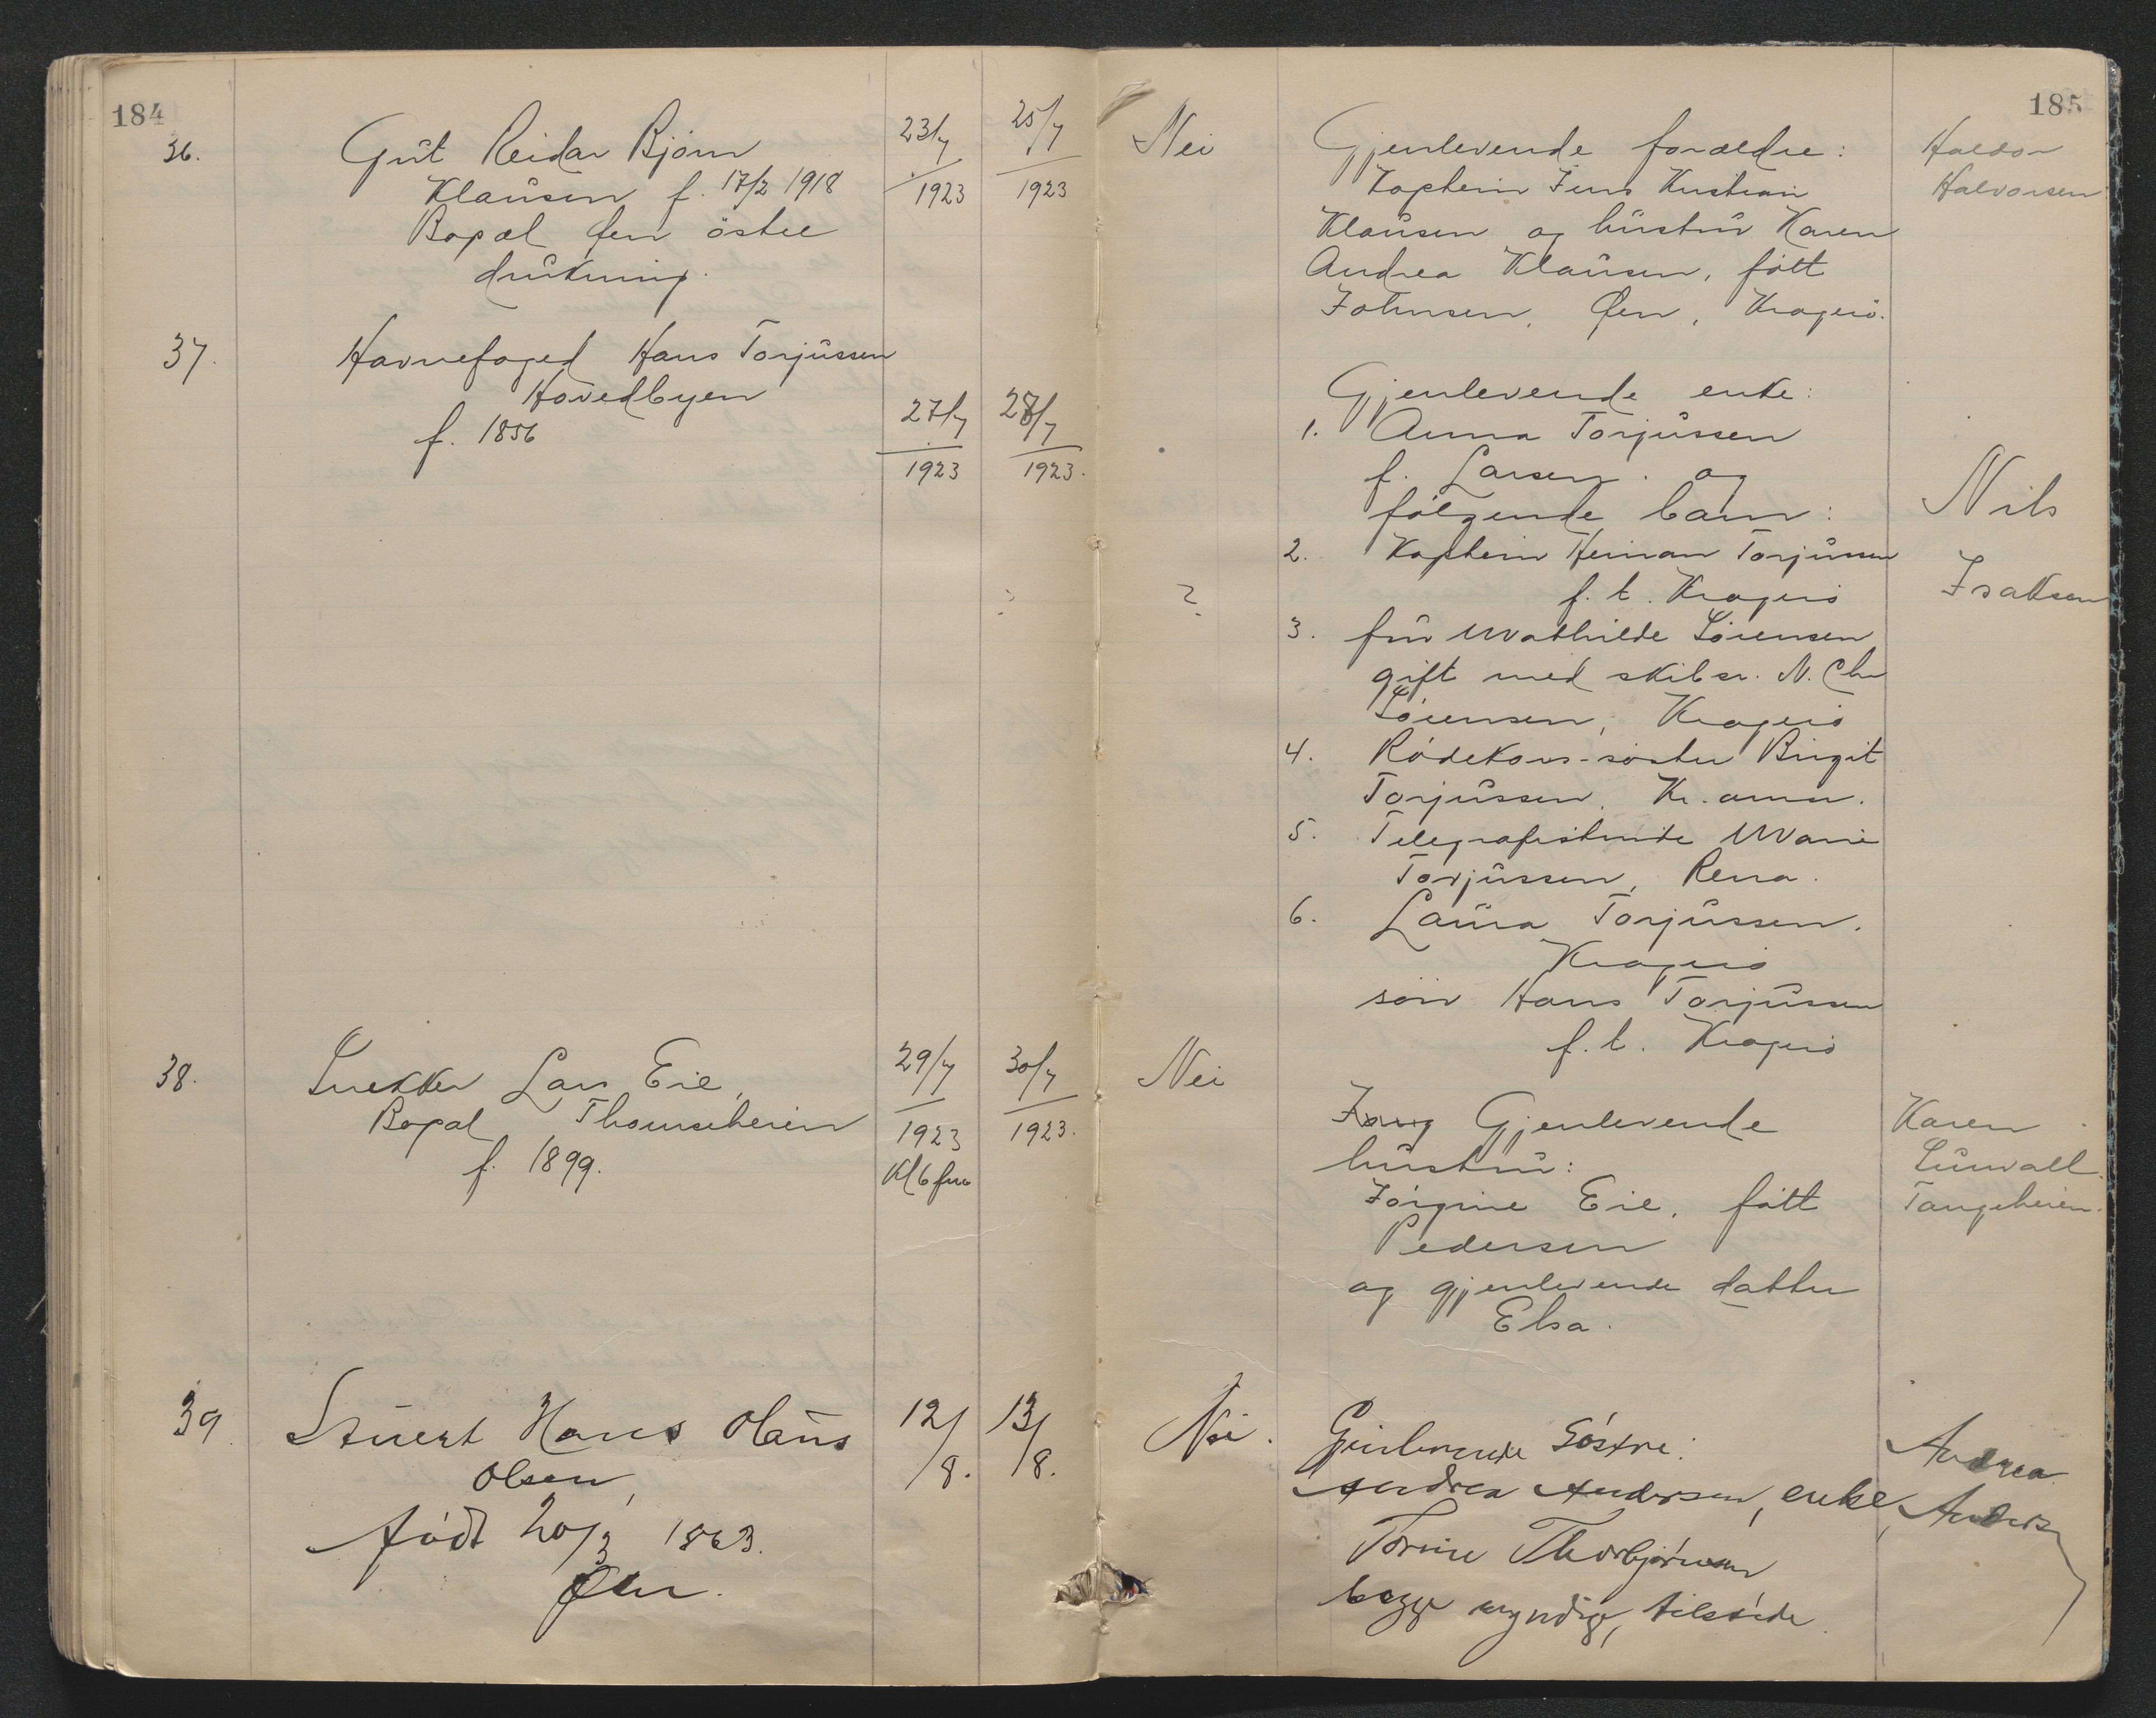 184
36.
Gut Reidar Bjørn
Klausen f. 17/2 1918
Bopæl Øen østre
drukning.
23/7 1923
25/7 1923
37.
Havnefoged Hans Torjussen
Hovedbyen
f. 1856
27/7 1923
28/7 1923.
38.
Snekker Lars Eie,
Bopæl Thomseheien
f. 1899.
29/7 1923
Kl 6 fm
30/7 1923.
39
Stuert Hans Olaus
Olsen,
født 20/3 1863.
Øen.
12/8.
13/8.
185
Nei
Gjenlevende forældre:
Kaptein Jens Kristian
Klausen og hustru Karen
Andrea Klausen, født
Johnsen, Øen, Kragerö.
Haldor
Halvorsen
Gjenlevende enke:
1. Anna Torjussen
f. Larsen. og
følgende barn:
2. Kaptein Herman Torjussen
f. t. Kragerö
?
3. fru Mathilde Sörensen
gift med skibsr. N. Chr
Sörensen, Kragerö
4. Rödekors-söster Birgit
Torjussen, Kr. ania.
5. Telegrafistinde Marie
Torjussen, Rena.
6. Laura Torjussen.
Kragerö
sön Hans Torjussen
f. t. Kragerö
Nils
Isaksen
Nei
Gjenlevende
hustru:
Jörgine Eie, født
Pedersen
og gjenlevende datter
Elsa.
Karen
Tangeheien.
Nei.
Gjenlevende Söstre:
Andrea Andersen, enke,
Torine Thorbjörnsen
begge myndige, tilstede.
Andrea